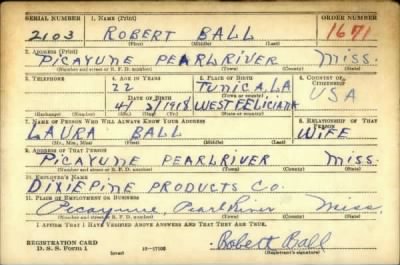 SERIAL NUMBER 1. NAME (Print) ORDER NUMBER
2103 ROBERT BALL 1671
(First) (Middle) (Last)
2. ADDRESS (Print)
PICAYUNE PEARLRIVER MISS.
(Number and street or R. F. D. number) (Town) (County) (State)
3. TELEPHONE 4. AGE IN YEARS 5. PLACE OF BIRTH 6. COUNTRY OF CITIZENSHIP
22 TUNICA, LA
(Town or county)
DATE OF BIRTH
4/ 3/1918 WEST FELICIANA USA
(Exchange) (Number) (Mo.) (Day) (Yr.) (State or country)
7. NAME OF PERSON WHO WILL ALWAYS KNOW YOUR ADDRESS 8. RELATIONSHIP OF THAT PERSON
LAURA BALL WIFE
(Mr., Mrs., Miss) (First) (Middle) (Last)
9. ADDRESS OF THAT PERSON
PICAYUNE PEARLRIVER MISS.
(Number and street or R. F. D. number) (Town) (County) (State)
10. EMPLOYER'S NAME
DIXIEPINE PRODUCTS CO.
11. PLACE OF EMPLOYMENT OR BUSINESS
Picayune, Pearl River Miss.
(Number and street or R. F. D. number) (Town) (County) (State)
I AFFIRM THAT I HAVE VERIFIED ABOVE ANSWERS AND THAT THEY ARE TRUE.
REGISTRATION CARD
D. S. S. Form 1 Robert Ball
(Registrant's signature)